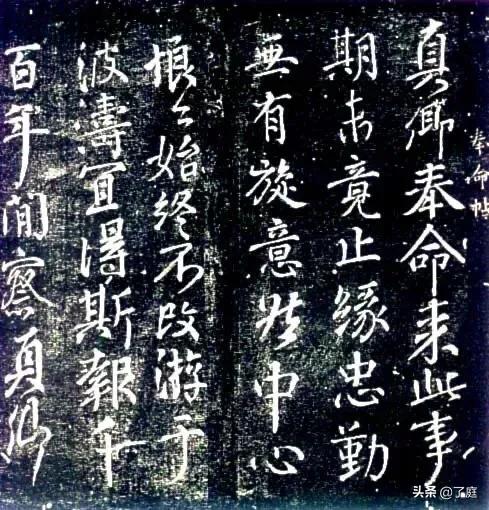 奉命帖
真卿奉命来此事
期未竟止緣忠勤
無有旋意然中心
恨々始終不改游于
波濤宜得斯報千
百年間察真卿
头条 @了庭